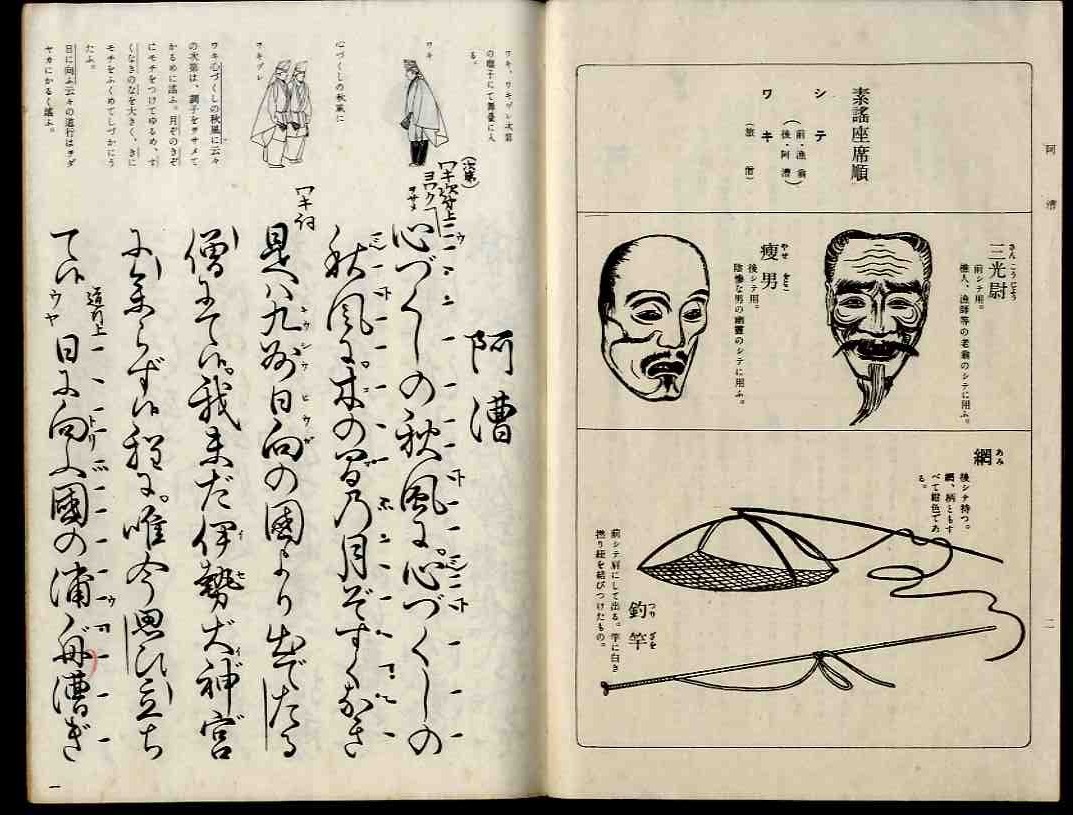 阿漕
二
素謠座席順
シテ
(前・漁翁
後・阿漕)
ワキ
(旅僧)
三光尉
さんこうじょう
前シテ用。
樵人、漁師等の老翁のシテに用ふ。
痩男
やせをとこ
後シテ用。
陰慘な男の幽靈のシテに用ふ。
網
あみ
後シテ持つ。
網、柄ともす
べて紺色であ
る。
釣竿
つりざを
前シテ肩にして出る。竿に白き
撚り紐を結びつけたもの。
ワキ、ワキヅレ次第
の囃子にて舞臺に入
る。
ワキ
心づくしの秋風に
ワキヅレ
ワキ心づくしの秋風に云々
の次第は、調子をヲサメて
かるめに謠ふ。月ぞのきぞ
にモチをつけてゆるめ、す
くなきのなを大きく、きに
モチをふくめてしづかにう
たふ。
日に向ふ云々の道行はサダ
ヤカにかるく謠ふ。
阿漕
(次第)
ワキ次第上
ヨワク
ヲサメ
心づくしの秋風に。心づくしの
秋風に。木の間乃月ぞすくなき
ワキ詞
是ハ九州日向の國より出でたる
僧にて候。我未だ伊勢大神宮
に參らず候程に。唯今思ひ立ち
て候
道行上
日に向ふ國の浦舟漕ぎ
一